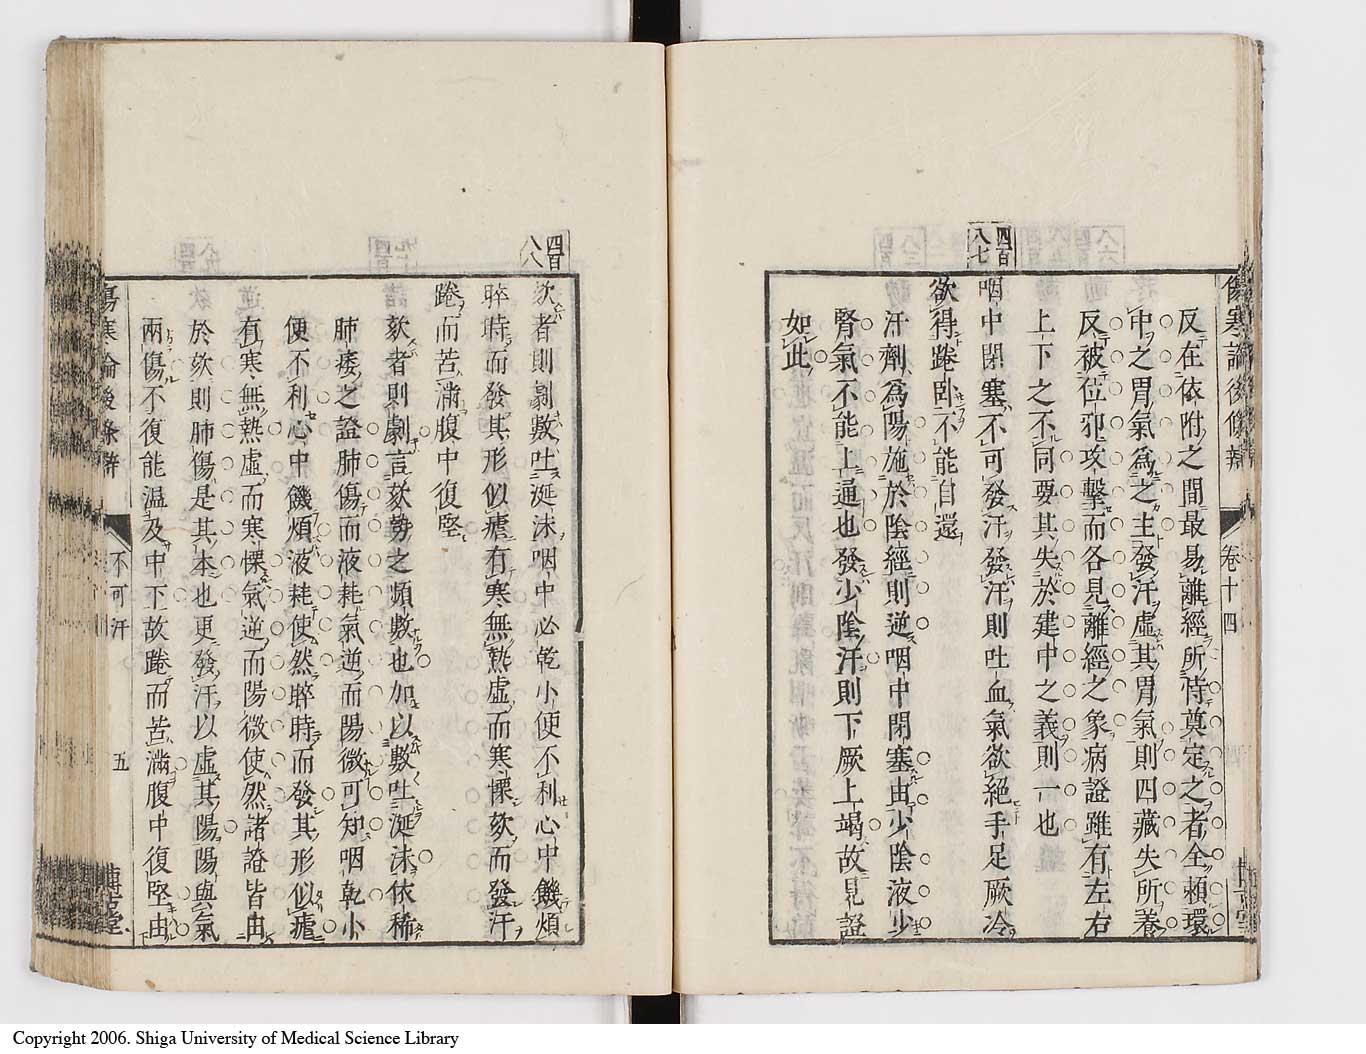 傷寒論後條辨 卷十四
反在依附之間最易離經所恃奠定之者全賴環
中之胃氣爲之主發汗虛其胃氣則四藏失所養
反被位邪攻擊而各見離經之象病證雖有左右
上下之不同要其失於建中之義則一也
四百八七
咽中閉塞不可發汗發汗則吐血氣欲絕手足厥冷
欲得踡臥不能自還
汗劑爲陽施於陰經則逆咽中閉塞由少陰液少
腎氣不能上通也發少陰汗則下厥上竭故見證
如此
四百八八
欬者則劇數吐涎沫咽中必乾小便不利心中饑煩
晬時而發其形似瘧有寒無熱虛而寒慄欬而發汗
踡而苦滿腹中復堅
欬者則劇言欬勢之頻數也加以數吐涎沫依稀
肺痿之證肺傷而液耗氣逆而陽微可知咽乾小
便不利心中饑煩液耗使然晬時而發其形似瘧
有寒無熱虛而寒慄氣逆而陽微使然諸證皆由
於欬則肺傷是其本也更發汗以虛其陽陽與氣
兩傷不復能溫及中下故踡而苦滿腹中復堅由
傷寒論後條辨 不可汗 五
Copyright 2006. Shiga University of Medical Science Library